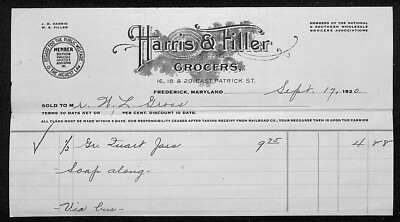 J. R. HARRIS
W. E. FILLER
MEMBERS OF THE NATIONAL
& SOUTHERN WHOLESALE
GROCERS ASSOCIATIONS
REGARD FOR THE PUBLIC WELFARE
IS THE HIGHEST LAW
MEMBER
SOUTHERN
WHOLESALE
GROCERS
ASSOCIATION
Harris & Filler
GROCERS,
16, 18 & 20 EAST PATRICK ST.
FREDERICK, MARYLAND Sept. 17, 1920
SOLD TO Mr. W. L. Gross
TERMS 30 DAYS NET OR PER CENT. DISCOUNT 10 DAYS.
ALL CLAIMS MUST BE MADE WITHIN 5 DAYS. OUR RESPONSIBILITY CEASES AFTER TAKING RECEIPT FROM RAILROAD CO., YOUR RECOURSE THEN IS UPON THE CARRIER
½ Gr. Quart Jars 9 75 4 88
Soap along-
-Via bus-